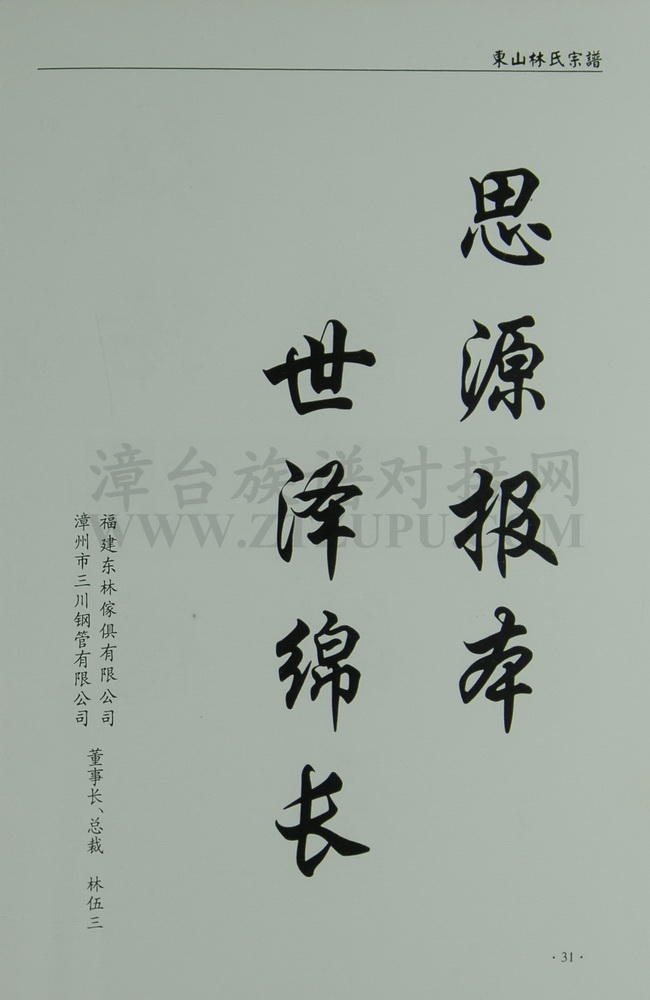 東山林氏宗譜
思源报本
世泽绵长
福建东林傢俱有限公司
漳州市三川钢管有限公司
董事长、总裁 林伍三
漳台族谱对接网
WWW.ZTZUPU.COM
·31·